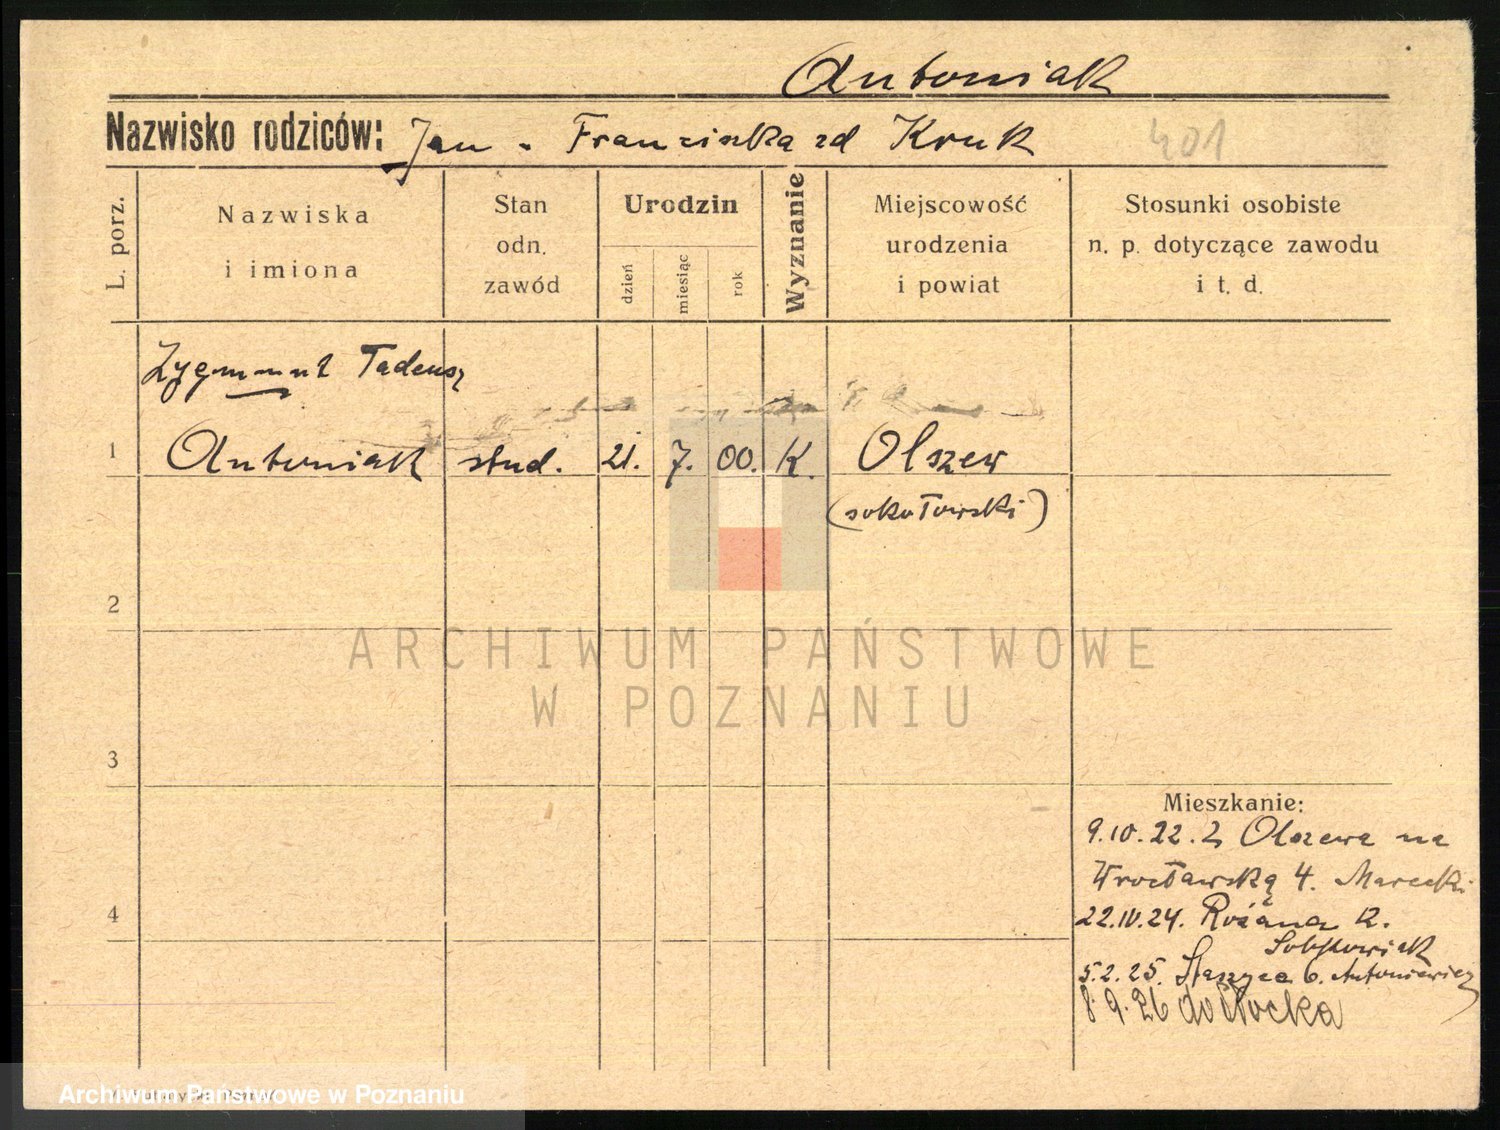 Antoniak
Nazwisko rodziców: Jan - Franciszka zd Kruk
401
L. porz.
Nazwiska
i imiona
Stan
odn.
zawód
Urodzin
dzień
miesiąc
rok
Wyznanie
Miejscowość
urodzenia
i powiat
Stosunki osobiste
n. p. dotyczące zawodu
i t. d.
Zygmunt Tadeusz
1 Antoniak stud. 21. 7. 00. K. Olszew
(sokołowski)
2
ARCHIWUM PAŃSTWOWE
W POZNANIU
3
Mieszkanie:
9.10.22. z Olszewa na
Wrocławską 4. Marecki
4
22.IV.24. Różana 12.
Sobkowiak
5.2.25. Staszyca 6. Antoniewicz
8.9.26 do Płocka
Archiwum Państwowe w Poznaniu